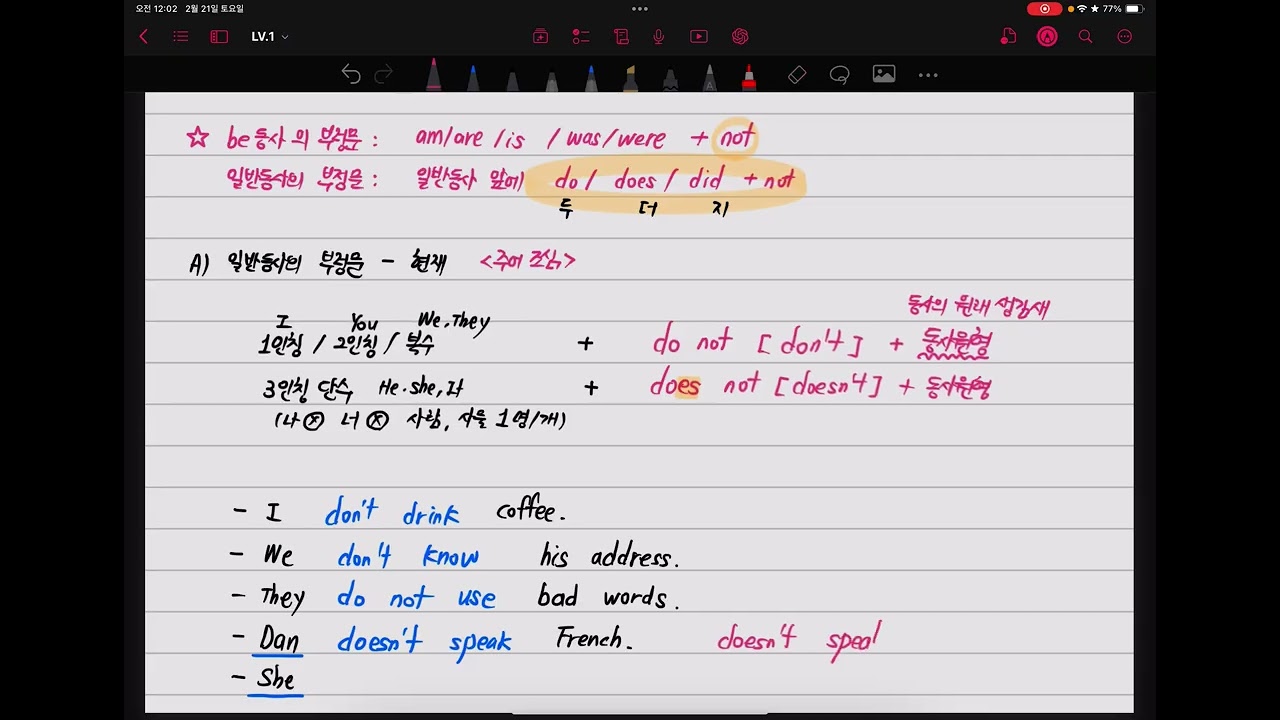 오전 12:02 2월 21일 토요일
77%
LV.1
☆ be동사의 부정문 : am/are/is / was/were + not
일반동사의 부정문 : 일반동사 앞에 do / does / did + not
두 더 지
A) 일반동사의 부정문 - 현재 <주어 조심>
동사의 원래 생김새
I You We, They
1인칭 / 2인칭 / 복수 + do not [don't] + 동사원형
3인칭 단수 He·she, It + does not [doesn't] + 동사원형
(나ⓧ 너ⓧ 사람, 사물 1명/개)
- I don't drink coffee.
- We don't know his address.
- They do not use bad words.
- Dan doesn't speak French. doesn't speal
- She